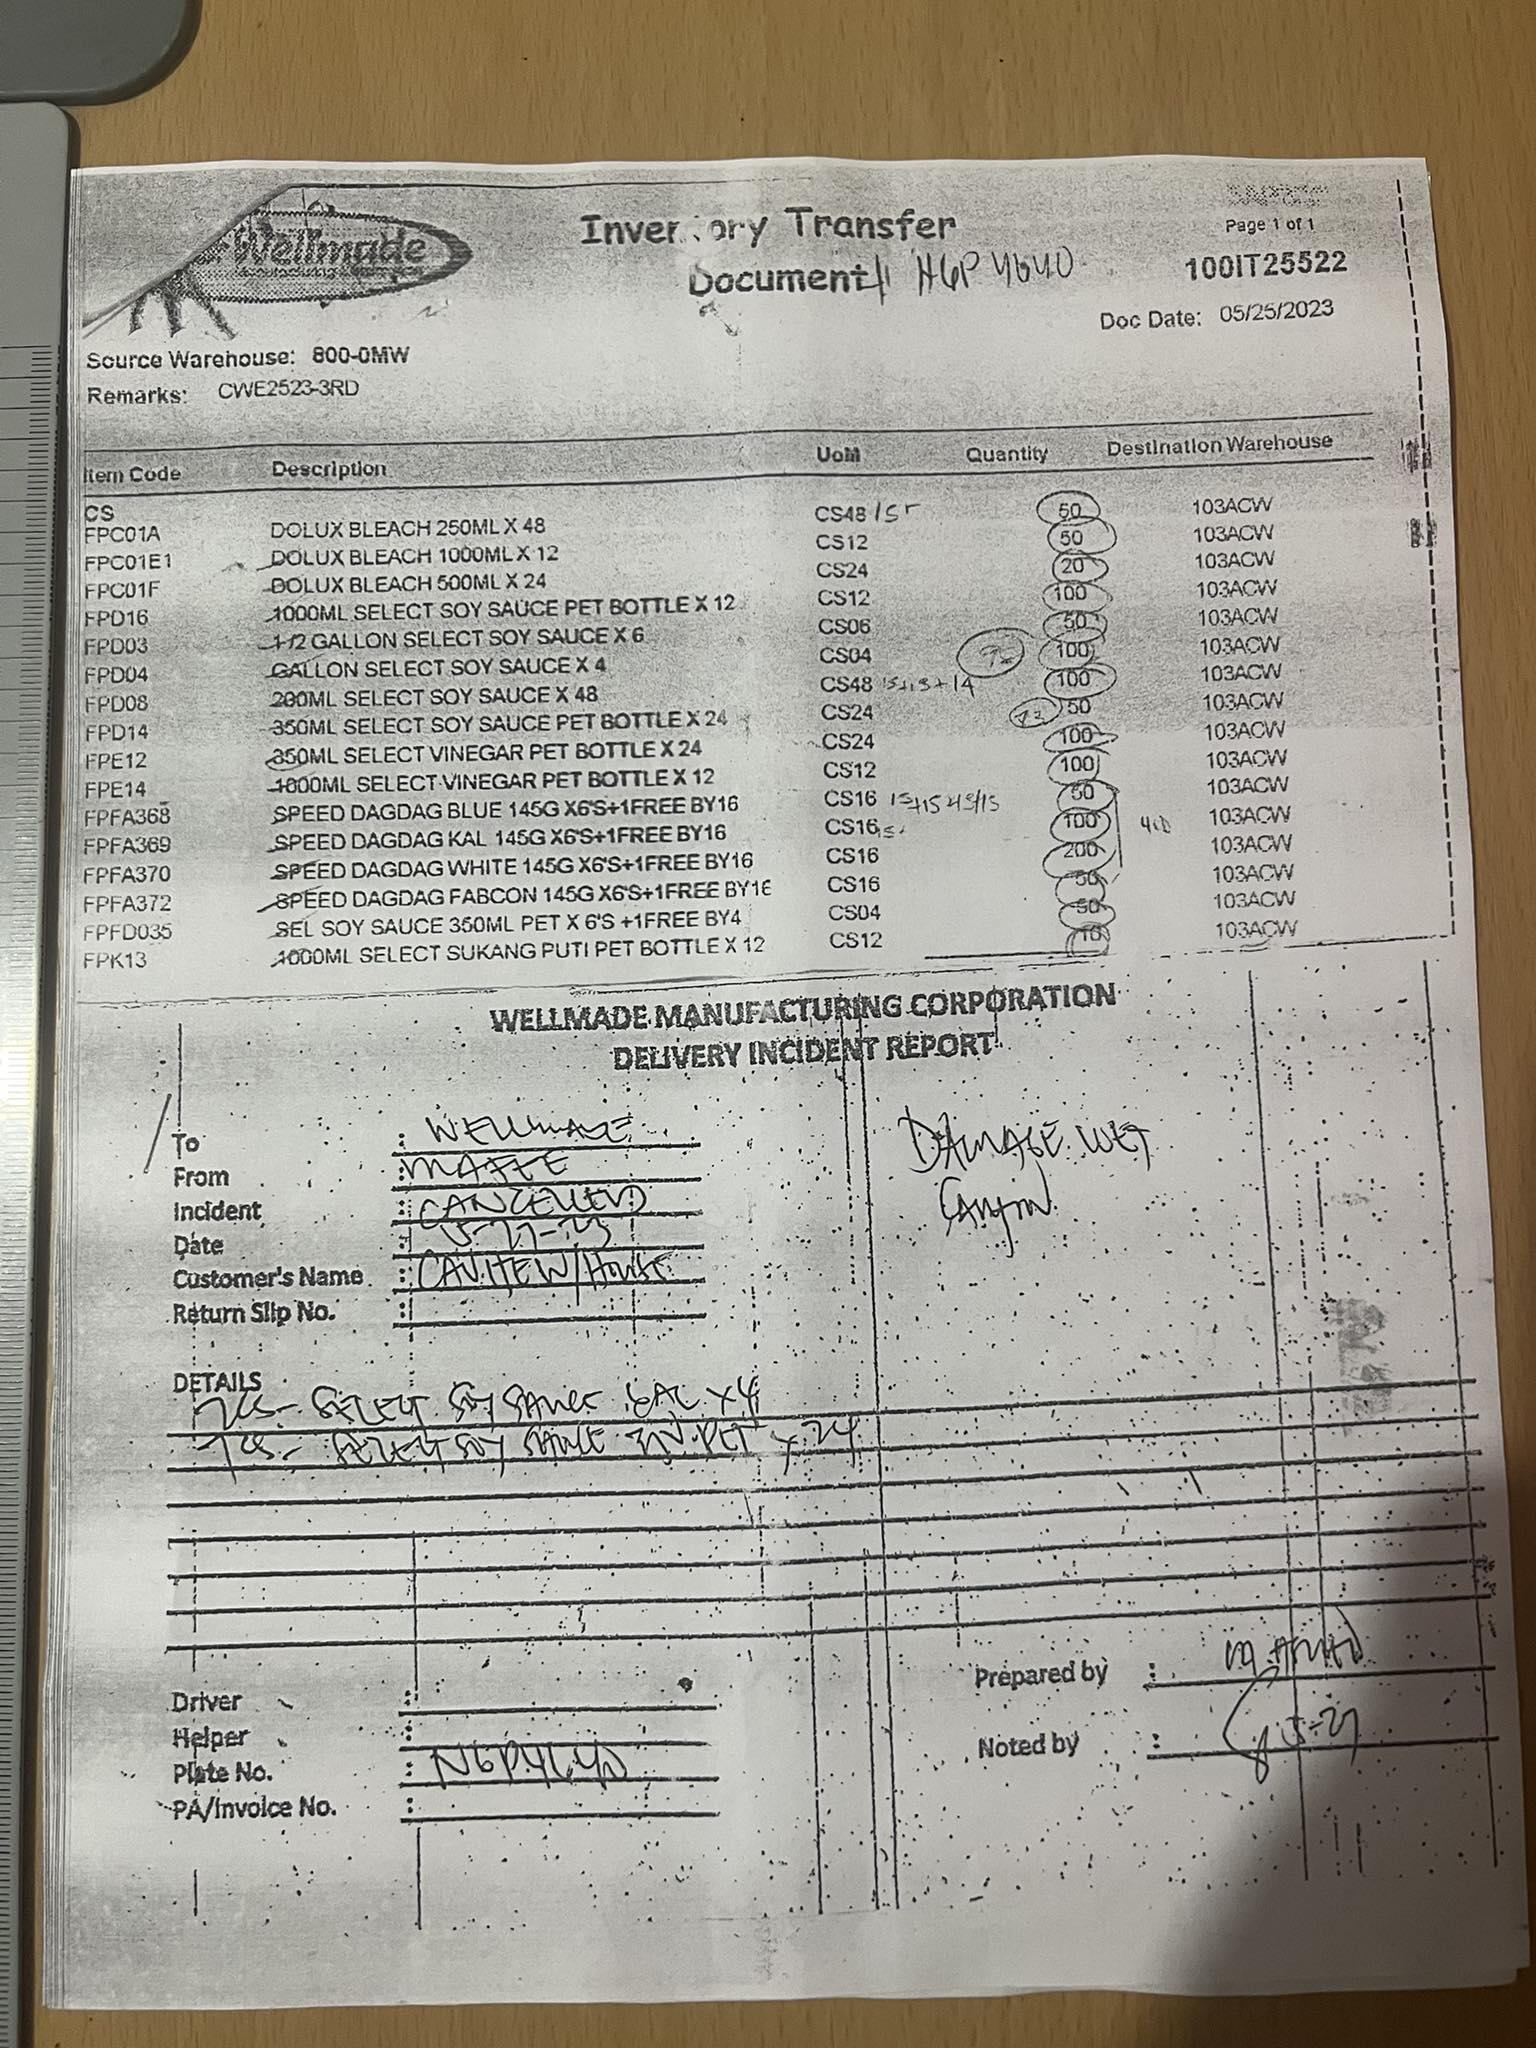 Wellmade
Inventory Transfer
Document
Page 1 of 1
100IT25522
Doc Date: 05/25/2023
Source Warehouse: 800-0MW
Remarks: CWE2523-3RD
Item Code Description UoM Quantity Destination Warehouse
CS
FPC01A DOLUX BLEACH 250ML X 48 CS48 50 103ACW
FPC01E1 DOLUX BLEACH 1000ML X 12 CS12 50 103ACW
FPC01F DOLUX BLEACH 500ML X 24 CS24 20 103ACW
FPD16 1000ML SELECT SOY SAUCE PET BOTTLE X 12 CS12 100 103ACW
FPD03 1/2 GALLON SELECT SOY SAUCE X 6 CS06 50 103ACW
FPD04 GALLON SELECT SOY SAUCE X 4 CS04 100 103ACW
FPD08 200ML SELECT SOY SAUCE X 48 CS48 100 103ACW
FPD14 350ML SELECT SOY SAUCE PET BOTTLE X 24 CS24 50 103ACW
FPE12 350ML SELECT VINEGAR PET BOTTLE X 24 CS24 100 103ACW
FPE14 1000ML SELECT VINEGAR PET BOTTLE X 12 CS12 100 103ACW
FPFA368 SPEED DAGDAG BLUE 145G X6'S+1FREE BY16 CS16 50 103ACW
FPFA369 SPEED DAGDAG KAL 145G X6'S+1FREE BY16 CS16 100 103ACW
FPFA370 SPEED DAGDAG WHITE 145G X6'S+1FREE BY16 CS16 200 103ACW
FPFA372 SPEED DAGDAG FABCON 145G X6'S+1FREE BY16 CS16 50 103ACW
FPFD035 SEL SOY SAUCE 350ML PET X 6'S +1FREE BY4 CS04 50 103ACW
FPK13 1000ML SELECT SUKANG PUTI PET BOTTLE X 12 CS12 10 103ACW
WELLMADE MANUFACTURING CORPORATION
DELIVERY INCIDENT REPORT
To : WELLMADE
From :
Incident : CANCELLED
Date : 5-27-23
Customer's Name : CAVITE W/House
Return Slip No. :
DAMAGE WET
DETAILS
SELECT SOY SAUCE GAL X4
7CS- SELECT SOY SAUCE PET X 24
Driver :
Helper :
Plate No. :
PA/Invoice No. :
Prepared by :
Noted by : 5-27